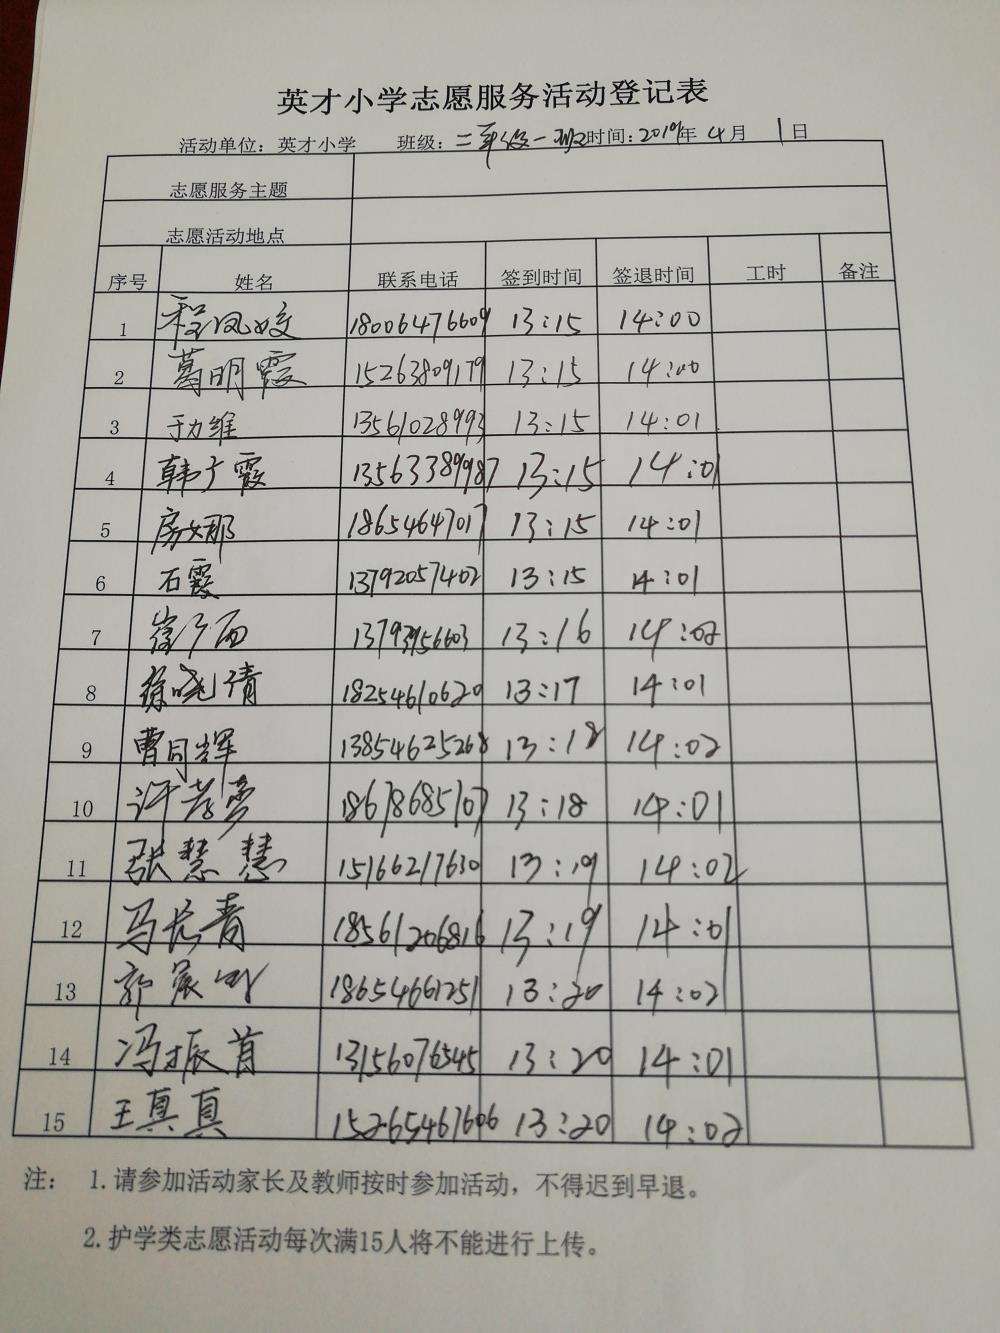 英才小学志愿服务活动登记表
活动单位：英才小学 班级：二年级一班 时间：2019年 4月 1日
志愿服务主题
志愿活动地点
序号 姓名 联系电话 签到时间 签退时间 工时 备注
1 程凤姣 18006476609 13:15 14:00
2 葛明霞 15263809179 13:15 14:00
3 于力维 13561028993 13:15 14:01
4 韩广霞 13563389987 13:15 14:01
5 房娜 18654647017 13:15 14:01
6 石霞 13792057402 13:15 14:01
7 13793956603 13:16 14:02
8 徐晓倩 18254610620 13:17 14:01
9 曹同辉 13854625268 13:18 14:02
10 许 18678685107 13:18 14:01
11 张慧慧 15166217630 13:19 14:02
12 马长青 18561206816 13:19 14:01
13 郭 18654661251 13:20 14:02
14 冯振首 13156076545 13:20 14:01
15 王真真 15265461606 13:20 14:02
注： 1.请参加活动家长及教师按时参加活动，不得迟到早退。
2.护学类志愿活动每次满15人将不能进行上传。